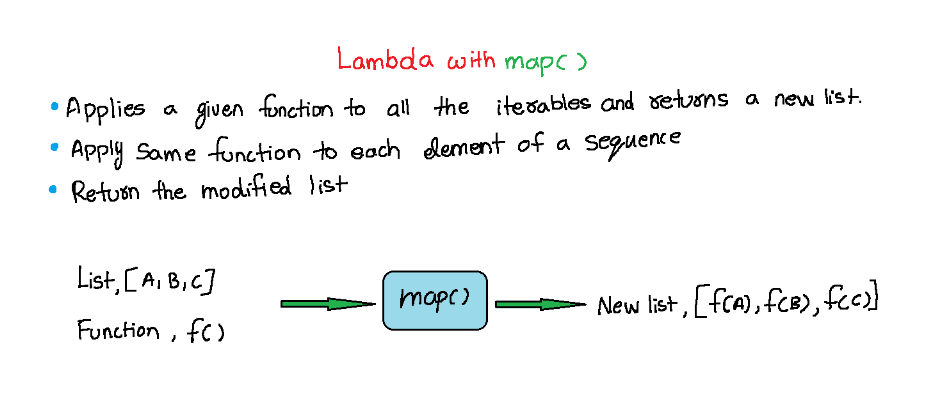 Lambda with map()
• Applies a given function to all the iterables and returns a new list.
• Apply Same function to each element of a sequence
• Return the modified list
List, [A, B, C]
Function, f()
map()
New list, [f(A), f(B), f(C)]